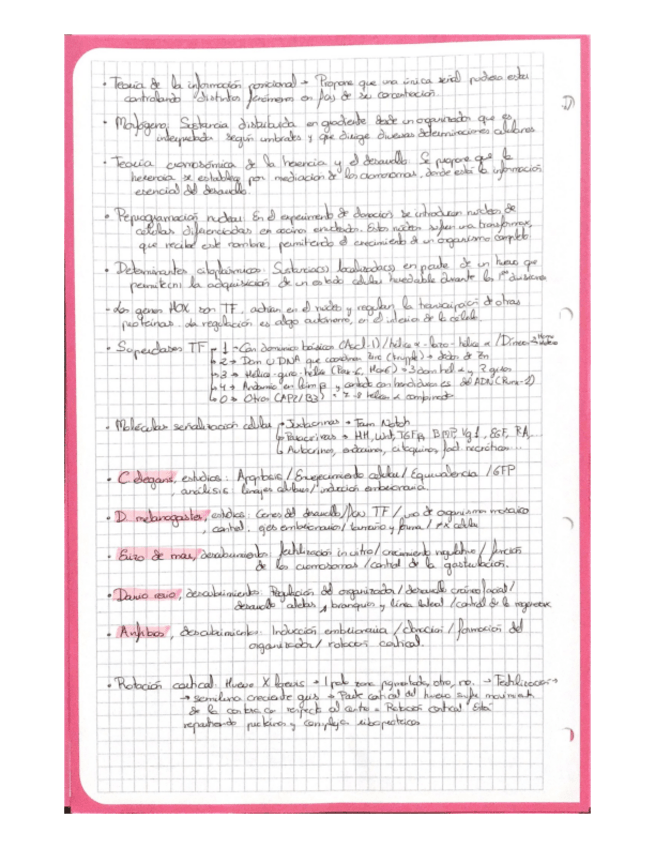 · Teoría de la información posicional → Propone que una única señal pudiera estar
controlando distintos fenómenos en f(x) de su concentración.
· Morfógeno. Sustancia distribuida en gradiente desde un organizador que es
interpretada según umbrales y que dirige diversas determinaciones celulares
· Teoría cromosómica de la herencia y el desarrollo. Se propone que la
herencia se establece por mediación de los cromosomas, donde está la información
esencial del desarrollo.
· Reprogramación nuclear. En el experimento de clonación se introducían núcleos de
células diferenciadas en ovocitos enucleados. Estos núcleos sufren una transformación,
que recibe este nombre, permitiendo el crecimiento de un organismo completo
· Determinantes citoplasmáticos. Sustancia(s) localizada(s) en parte de un huevo que
permite(n) la adquisición de un estado celular heredable durante las 1ªs divisiones
· Los genes HOX son TF, actúan en el núcleo y regulan la transcripción de otras
proteínas. La regulación es algo autónomo, en el interior de la célula.
· Superclases TF → 1 → Con dominios básicos (Ascl-1) / hélice α - lazo - hélice α / Dímeros → Homo
→ 2 → Dom U DNA que coordinan Zinc (Krüppel) → dedos de Zn
→ 3 → Hélice-giro-hélice (Pax-6, Hox6) → 3 dom hél α y 2 giros
→ 4 → Andamio en lámina β y contacto con hendiduras del ADN (Runx-2)
→ 0 → Otros (AP2/B3) → 7-8 hélices α
· Moléculas señalización celular → Yuxtacrinas → Fam Notch
→ Paracrinas → HH, Wnt, TGFβ, BMP, Vg1, EGF, RA...
→ Autocrinas, endocrinas, citoquinas, fact. necróticos...
· C elegans, estudios: Apoptosis / Envejecimiento celular / Equivalencia / GFP
, análisis linajes celulares / inducción embrionaria.
· D. melanogaster, estudios: Genes del desarrollo / TF / uso de organismo mosaico
, control ejes embrionarios / tamaño y forma / celular
· Erizo de mar, descubrimientos: fertilización in vitro / crecimiento regulativo / función
de los cromosomas / control de la gastrulación.
· Danio rerio, descubrimientos: Regulación del organizador / desarrollo craneofacial /
desarrollo aletas, branquias y línea lateral / control de la regeneración
· Anfibios, descubrimientos: Inducción embrionaria / clonación / formación del
organizador / rotación cortical.
· Rotación cortical. Huevo X laevis → 1 polo zona pigmentada, otro, no. → Fertilización →
→ semiluna creciente gris → Parte cortical del huevo sufre movimiento
de la corteza con respecto al centro = Rotación cortical. Está
repartiendo proteínas y complejos riboproteicos